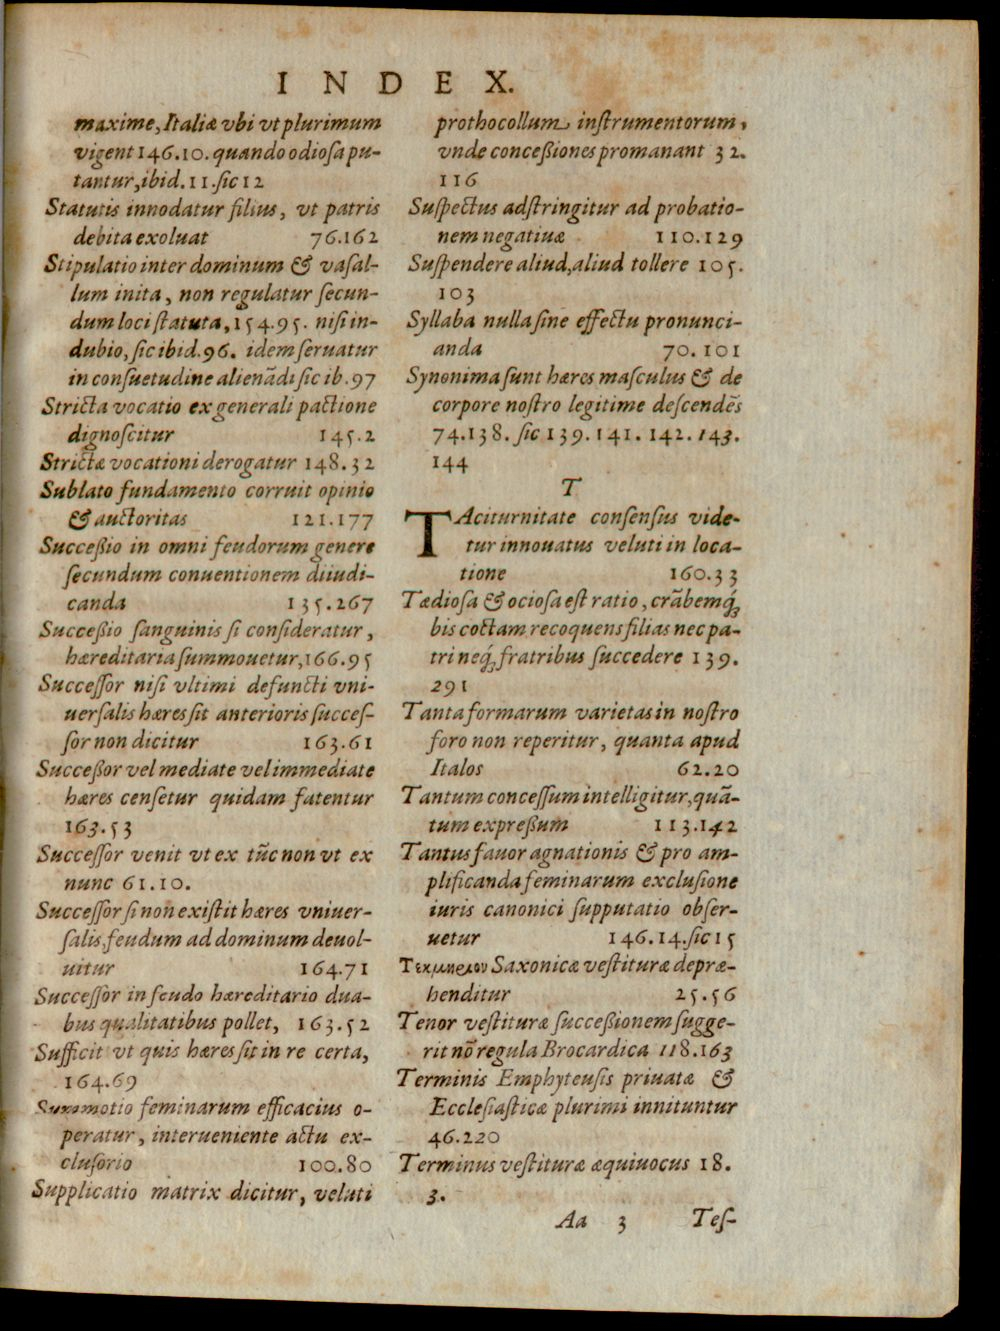 INDEX.
maxime, Italiæ vbi vt plurimum
vigent 146.10. quando odiosa pu-
tantur, ibid. 11. sic 12
Statutis innodatur filius, vt patris
debita exoluat 76.162
Stipulatio inter dominum & vasal-
lum inita, non regulatur secun-
dum loci statuta, 154.95. nisi in-
dubio, sic ibid. 96. idem seruatur
in consuetudine alienãdi sic ib. 97
Stricta vocatio ex generali pactione
dignoscitur 145.2
Strictæ vocationi derogatur 148.32
Sublato fundamento corruit opinio
& auctoritas 121.177
Succeßio in omni feudorum genere
secundum conuentionem diiudi-
canda 135.267
Succeßio sanguinis si consideratur,
hæreditaria summouetur, 166.95
Successor nisi vltimi defuncti vni-
uersalis hæres sit anterioris succes-
sor non dicitur 163.61
Succeßor vel mediate vel immediate
hæres censetur quidam fatentur
163.53
Successor venit vt ex tũc non vt ex
nunc 61.10.
Successor si non existit hæres vniuer-
salis, feudum ad dominum deuol-
uitur 164.71
Successor in feudo hæreditario dua-
bus qualitatibus pollet, 163.52
Sufficit vt quis hæres sit in re certa,
164.69
Summotio feminarum efficacius o-
peratur, interueniente actu ex-
clusorio 100.80
Supplicatio matrix dicitur, veluti
prothocollum instrumentorum,
vnde conceßiones promanant 32.
116
Suspectus adstringitur ad probatio-
nem negatiuæ 110.129
Suspendere aliud, aliud tollere 105.
103
Syllaba nulla sine effectu pronunci-
anda 70.101
Synonima sunt hæres masculus & de
corpore nostro legitime descendẽs
74.138. sic 139.141.142.143.
144
T
TAciturnitate consensus vide-
tur innouatus veluti in loca-
tione 160.33
Tædiosa & ociosa est ratio, crãbemq́;
bis coctam recoquens filias nec pa-
tri neq́; fratribus succedere 139.
291
Tanta formarum varietas in nostro
foro non reperitur, quanta apud
Italos 62.20
Tantum concessum intelligitur, quã-
tum expreßum 113.142
Tantus fauor agnationis & pro am-
plificanda feminarum exclusione
iuris canonici supputatio obser-
uetur 146.14. sic 15
Τεκμηελον Saxonicæ vestituræ depræ-
henditur 25.56
Tenor vestituræ succeßionem sugge-
rit nõ regula Brocardica 118.163
Terminis Emphyteusis priuatæ &
Ecclesiasticæ plurimi innituntur
46.220
Terminus vestituræ æquiuocus 18.
3.
Aa 3 Tes-